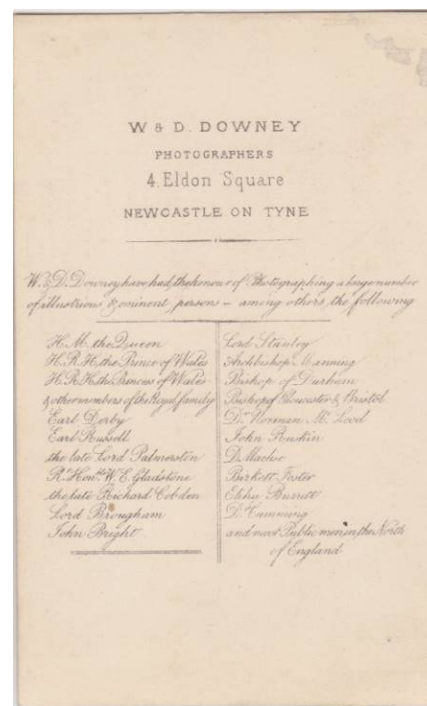 W & D. DOWNEY
PHOTOGRAPHERS
4. Eldon Square
NEWCASTLE ON TYNE
W. & D. Downey have had the honour of Photographing a large number
of illustrious & eminent persons – among others the following
H. M. the Queen
H. R. H. the Prince of Wales
H. R. H. the Princess of Wales
& other members of the Royal family
Earl Derby
Earl Russell
the late Lord Palmerston
Rt. Honble W. E. Gladstone
the late Richard Cobden
Lord Brougham
John Bright
Lord Stanley
Archbishop Manning
Bishop of Durham
Bishop of Gloucester & Bristol
Dr. Norman Mc. Leod
John Ruskin
D. Maclise
Birkett Foster
Elihu Burritt
Dr. Cumming
and most Public men in the North
of England